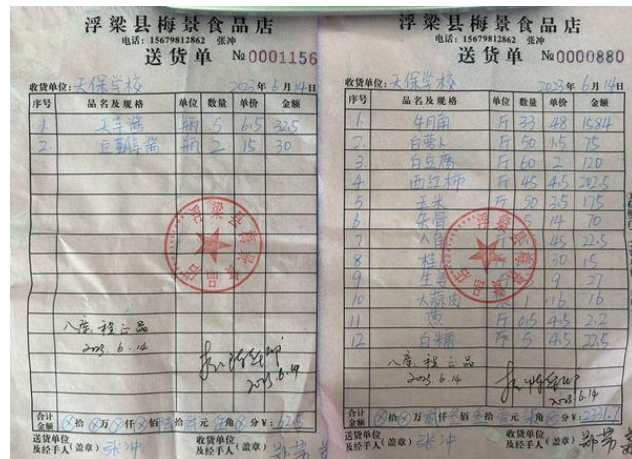 浮梁县梅景食品店
电话: 15679812862 张冲
送货单 №0001156
收货单位: 天保学校 2023年6月14日
序号 品名及规格 单位 数量 单价 金额
1. 瓶 5 6.5 32.5
2. 瓶 2 15 30
浮梁县梅景食品店
入库:程正品
2023.6.14
2023.6.14
合计金额 拾 万 仟 佰 拾 贰元 角 分 ¥: 62.5
送货单位及经手人(盖章) 张冲 收货单位及经手人(盖章)
浮梁县梅景食品店
电话: 15679812862 张冲
送货单 №0000880
收货单位: 天保学校 2023年6月14日
序号 品名及规格 单位 数量 单价 金额
1. 牛肉 斤 33 48 1584
2. 白萝卜 斤 50 1.5 75
3. 白豆腐 斤 60 2 120
4 西红柿 斤 45 4.5 202.5
5 玉米 斤 50 3.5 175
6 5 14 70
7 八角 45 22.5
8 桂 30 15
9 生姜 9 27
10 大蒜肉 1 16 16
11 斤 0.5 4.5 2.2
12 白 斤 5 4.5 22.5
浮梁县梅景食品店
入库:程正品
2023.6.14
2023.6.14
合计金额 拾 万 贰仟 叁佰 叁拾 壹元 壹角 分 ¥: 2331.1
送货单位及经手人(盖章) 张冲 收货单位及经手人(盖章)